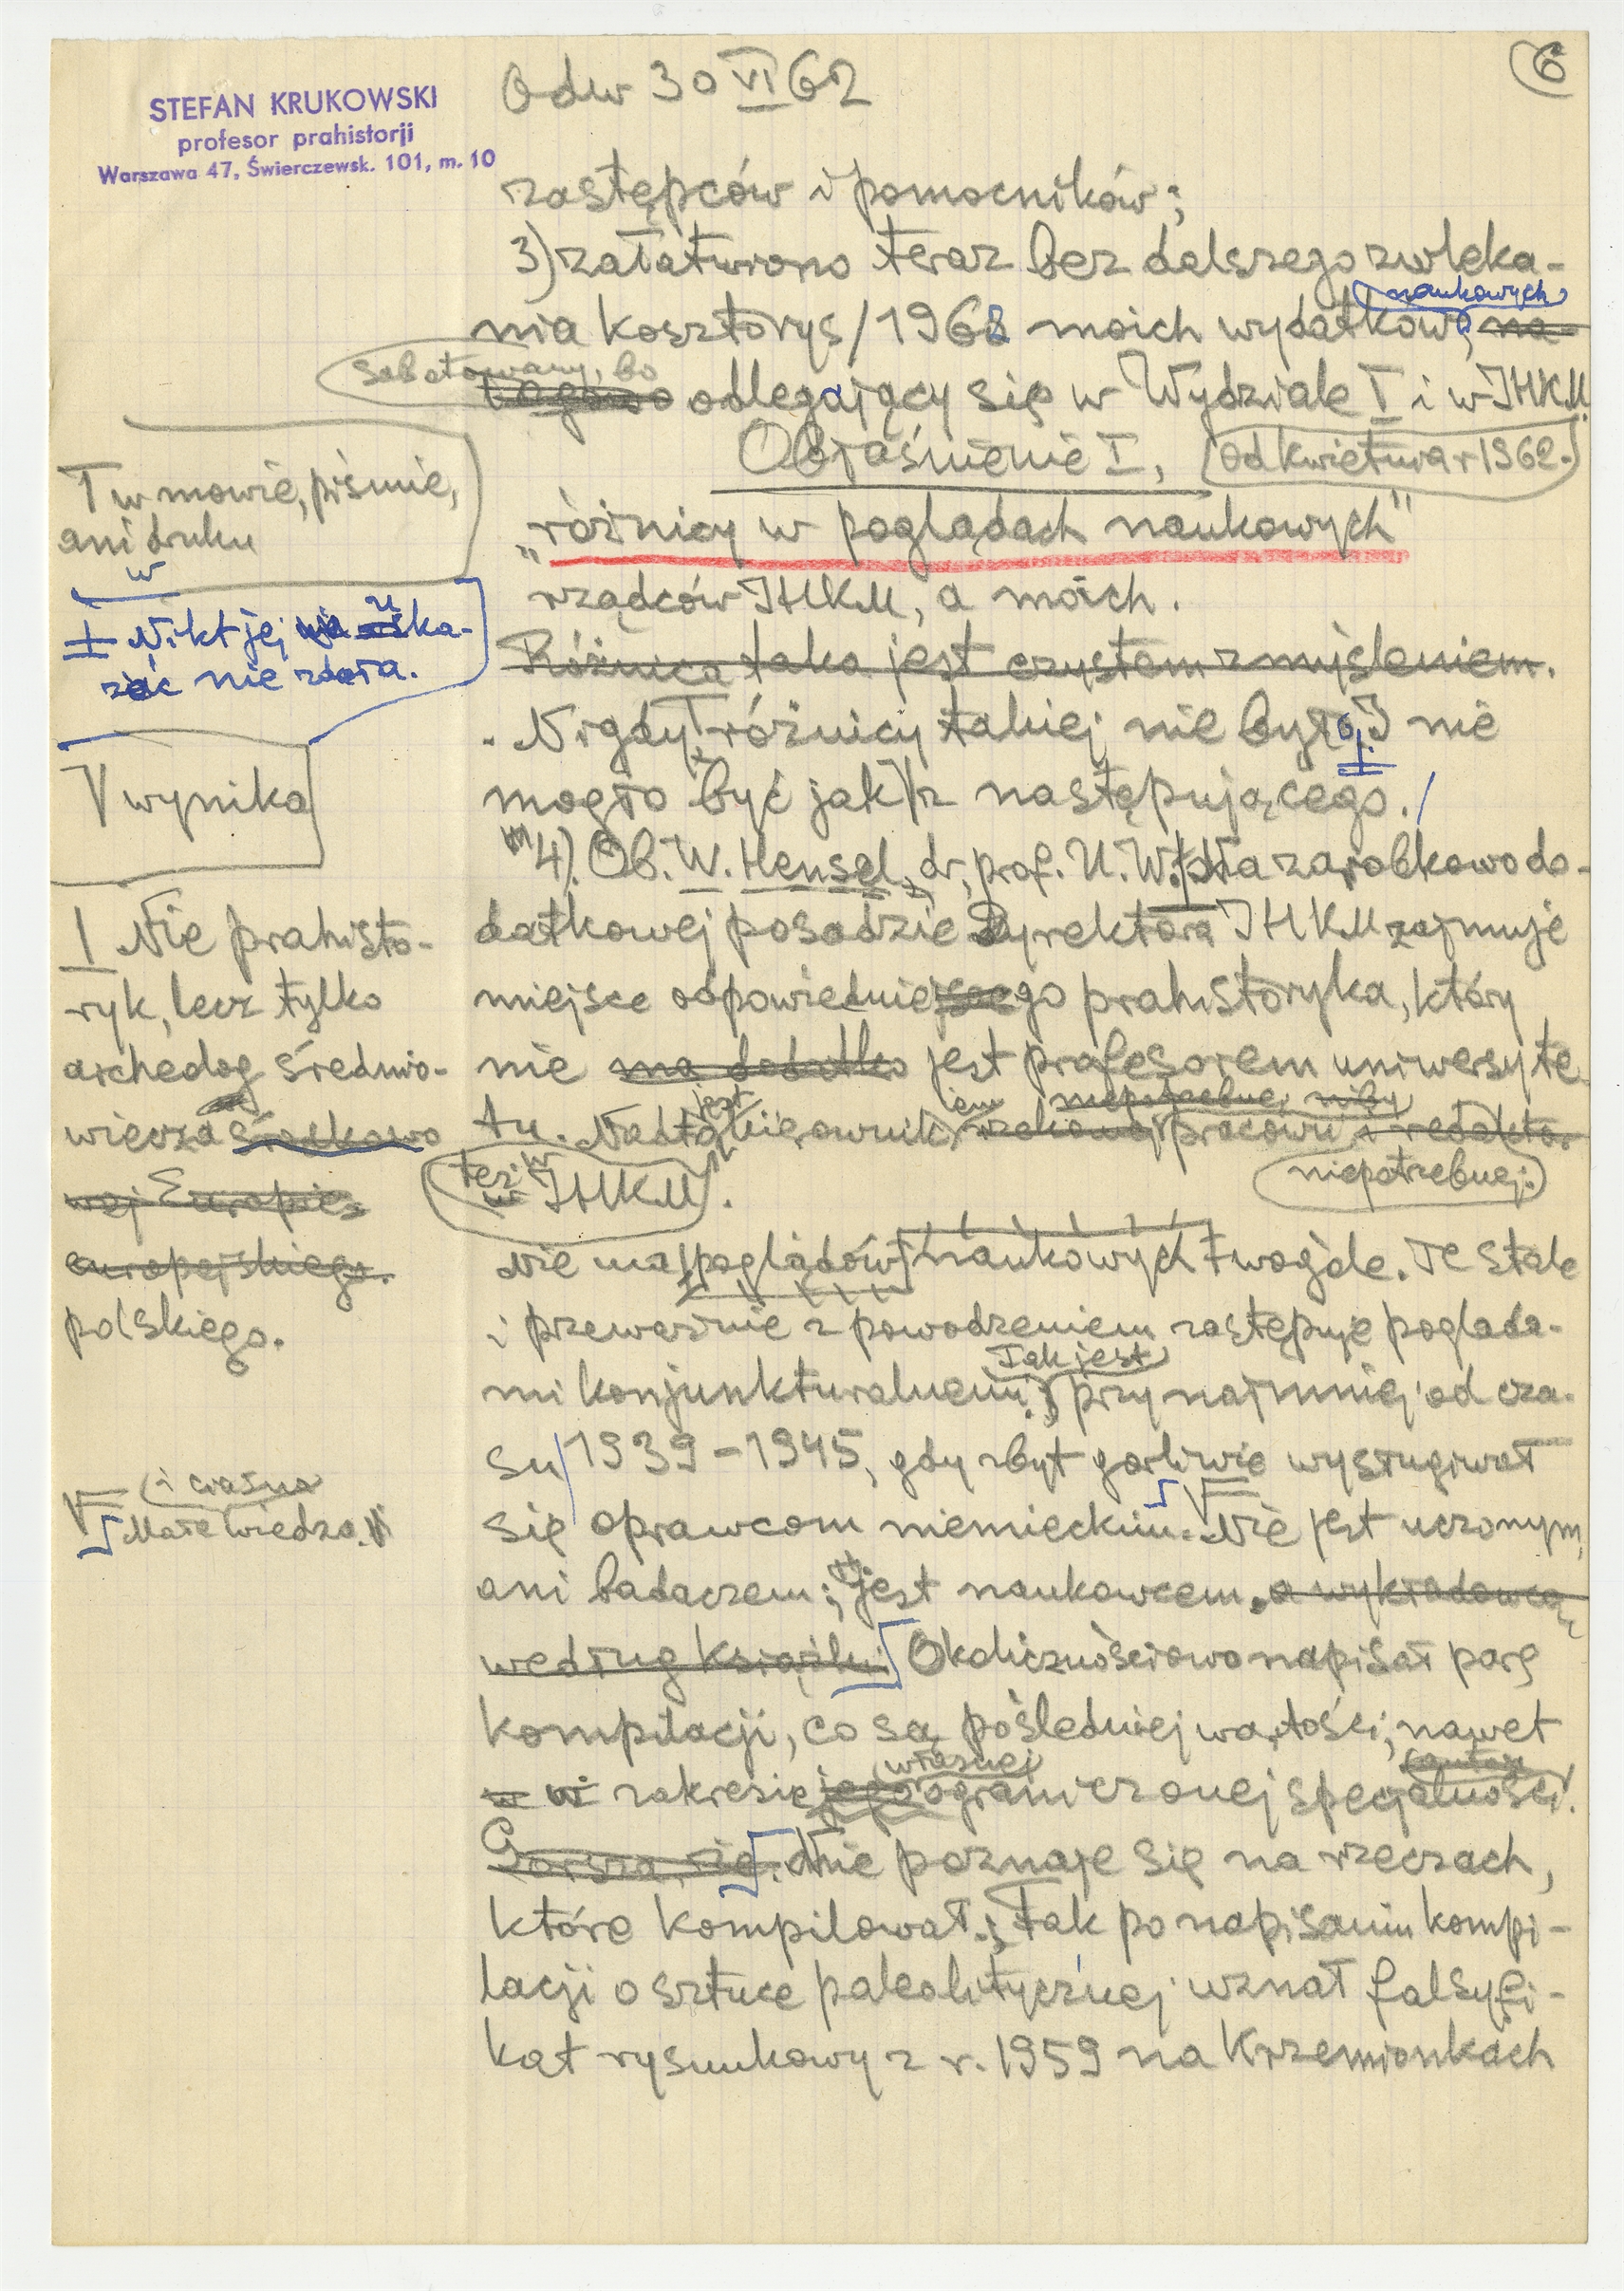 Odw 30 VI 62
6
STEFAN KRUKOWSKI
profesor prahistorji
Warszawa 47, Świerczewsk. 101, m. 10
zastępców i pomocników;
3) załatwiono teraz bez dalszego zwleka-
naukowych
nia kosztorys/1962 moich wydatków, na-
sabotowany, bo
odlegający się w Wydziale I i w IHKM
Objaśnienie I, od kwietnia r 1962.
„różnicy w poglądach naukowych"
rządców IHKM, a moich.
Różnica taka jest czystem zmyśleniem.
Nigdy różnicy takiej nie było. I nie
mogło być jak z następującego.
4). Ob. W. Hensel, dr, prof. U. W. Na zarobkowo do-
datkowej posadzie Dyrektora IHKM zajmuje
miejsce odpowiedniego prahistoryka, który
nie ma dodatko jest profesorem uniwersyte
jest iem niepotrzebnej niby
tu. Nadto kierownik pracowni i redakto-
też w IHKM. niepotrzebnej.
Nie ma poglądów naukowych w ogóle. Te stale
i przeważnie z powodzeniem zastępuje poglada-
Tak jest
mi konjunkturalnemi; przynajmniej od cza-
su 1939-1945, gdy zbyt gorliwie wysługiwał
się oprawcom niemieckim. Nie jest uczonym,
ani badaczem; jest naukowcem, a wykładowcą
według książki. Okolicznościowo napisał parę
kompilacji, co są pośledniej wartości, nawet
własnej
w zakresie jego ograniczonej specjalności.
Gorsza, że. Nie poznaje się na rzeczach,
które kompilował; Tak po napisaniu kompi-
lacji o sztuce paleolitycznej uznał falsyfi-
kat rysunkowy z r. 1959 na Krzemionkach
T w mowie, piśmie,
ani w druku
I Nikt jej uka-
zać nie zdoła.
V wynika
I Nie prahisto-
ryk, lecz tylko
archeolog średnio-
wiecza środkowo
wej Europie
europejskiego.
polskiego.
i ciasna
Małe wiedza.